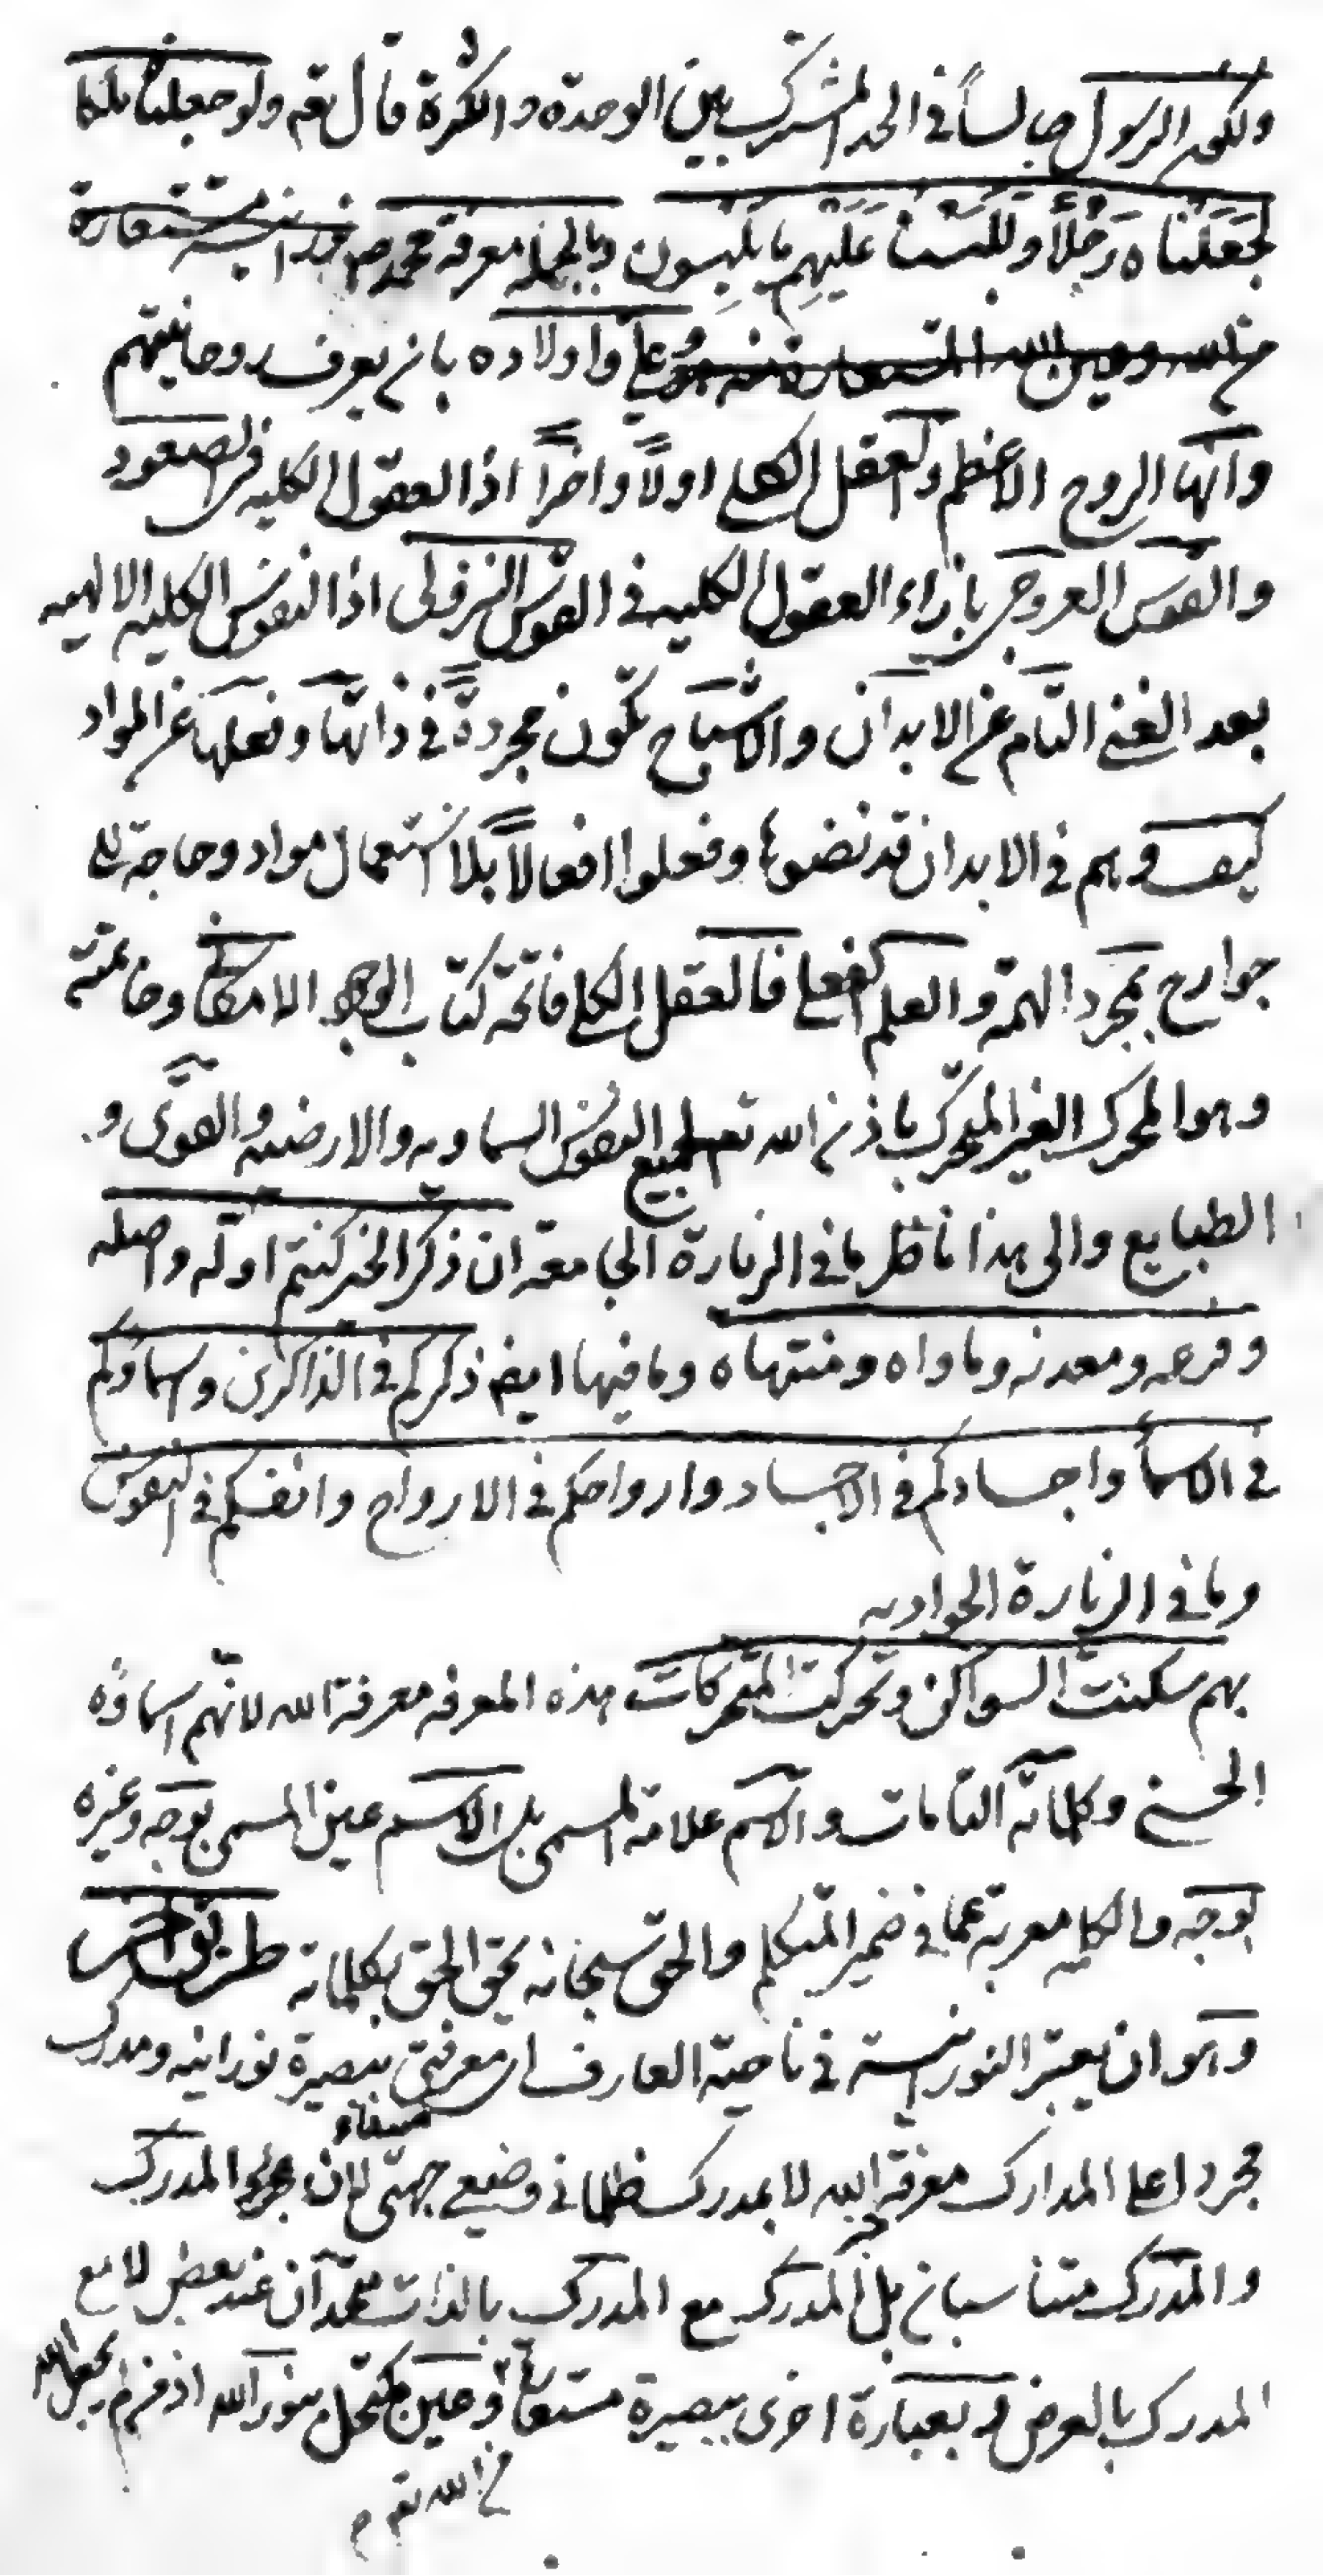 ولكون الرسول جالساً في الحد المشترك بين الوحدة والكثرة قال تعم ولو جعلناه ملكا
لجَعَلناه رَجُلاً وللَبَسْنا عَلَيْهِم ما يَلْبِسون وبالجمله معرفة محمد ص
علي واولاده بان يعرف روحانيتهم
وانها الروح الاعظم والعقل الكلي اولاً واخراً اذ العقول الكليه في الصعود
والقوس العروجي بازاء العقول الكليه في القوس النزولى اذ النفوس الكليه الالهيه
بعد الغنى التام عن الابدان والاشباح تكون مجردةً في ذاتها وفعلها عن المواد
كيف وهم في الابدان قد نضوها وفعلوا افعالاً بلا استعمال مواد وحاجة الى
جوارح بمجرد الهمة والعلم الفعلي فالعقل الكلي فاتحة كتاب الوجود الامكاني وخاتمته
وهو المحرك الغير المتحرك باذن الله تعم لجميع النفوس السماويه والارضيه والقوى و
الطبايع والى هذا ناظر ما في الزيارة الجامعة ان ذكر الخير كنتم اوله واصله
وفرعه ومعدنه وماواه ومنتهاه وما فيها ايض ذكركم في الذاكرين واسماؤكم
في الاسماء واجسادكم في الاجساد وارواحكم في الارواح وانفسكم في النفوس
وما في الزيارة الجواديه
بهم سكنت السواكن وتحركت المتحركات هذه المعرفه معرفة الله لانهم اسماؤه
الحسنى وكلماته التامات والاسم علامة المسمى بل الاسم عين المسمى بوجه وغيره
بوجه والكلمه معربة عما في ضمير المتكلم والحق سبحانه يحق الحق بكلماته طريق اخر
وهو ان يعتبر النورانية في ناحية العارف اي معرفتي ببصيرة نورانيه ومدرك
مجرد اعلى المدارك معرفة الله لا بمدرك ظلماني وضيعي جهتي لان المدرِك
والمدرَك متناسبان بل المدرك مع المدرك بالذات متحدان عند بعض لا مع
المدرك بالعرض وبعبارة اخرى ببصيرة مستعارة وعين مكتحل بنور الله اذ من لم يجعل الله
من الله تعم